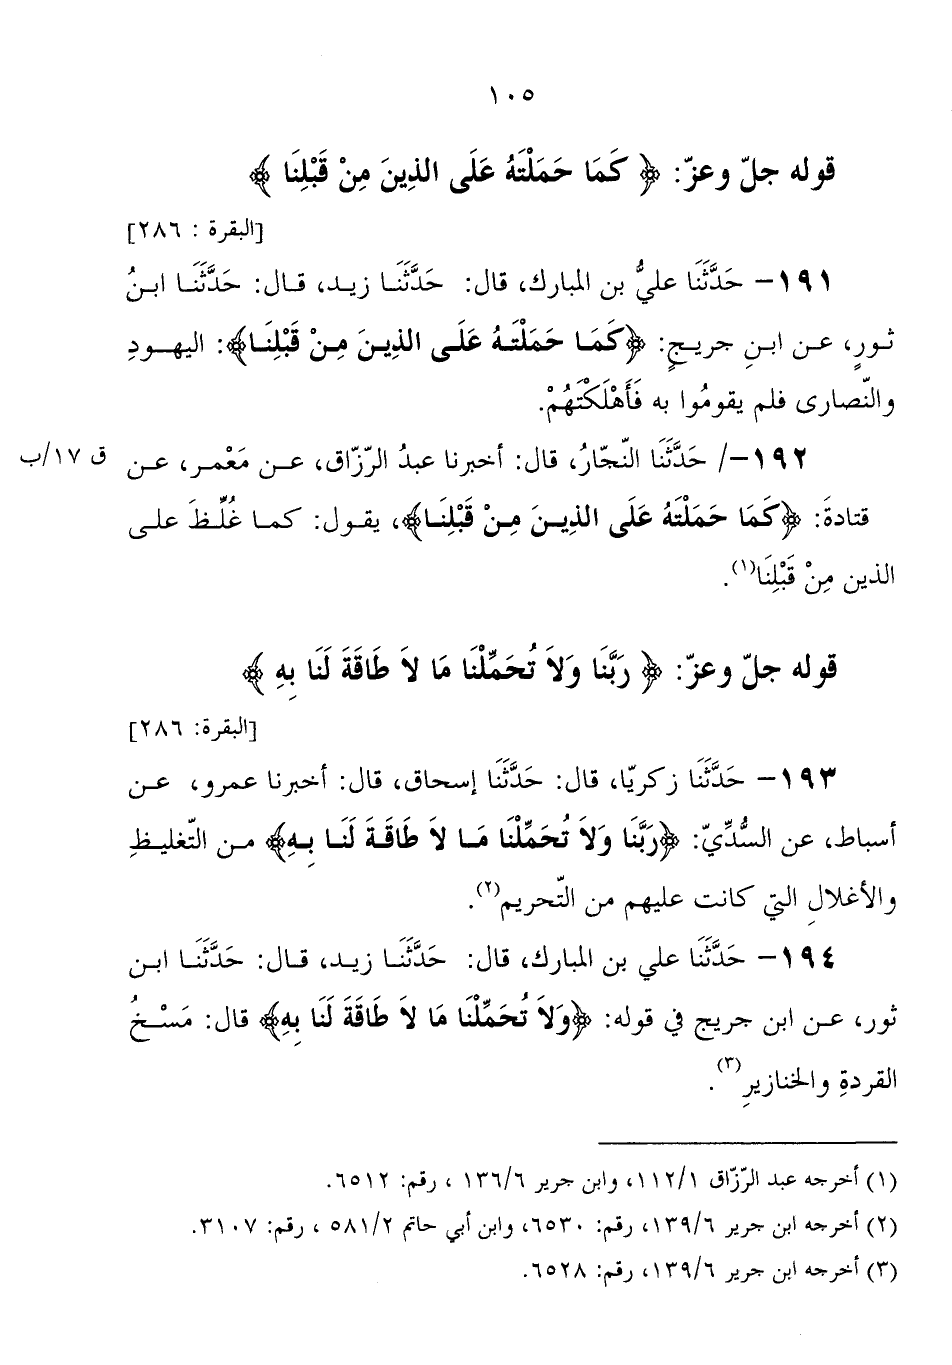 ١٠٥
قوله جلّ وعزّ: ﴿ كَمَا حَمَلْتَهُ عَلَى الذِينَ مِنْ قَبْلِنَا ﴾
[البقرة : ٢٨٦]
١٩١– حَدَّثَنَا عليُّ بن المبارك، قال: حَدَّثَنَا زيد، قال: حَدَّثَنَا ابنُ
ثورٍ، عن ابنِ جريجٍ: ﴿كَمَا حَمَلْتَهُ عَلَى الذِينَ مِنْ قَبْلِنَا﴾: اليهودِ
والنّصارى فلم يقومُوا به فَأَهْلَكْتَهُمْ.
١٩٢–/ حَدَّثَنَا النّجّارُ، قال: أخبرنا عبدُ الرّزّاق، عن مَعْمر، عن ق ١٧/ب
قتادةَ: ﴿كَمَا حَمَلْتَهُ عَلَى الذِينَ مِنْ قَبْلِنَا﴾، يقول: كما غُلِّظَ على
الذين مِنْ قَبْلِنَا(١).
قوله جلّ وعزّ: ﴿ رَبَّنَا وَلاَ تُحَمِّلْنَا مَا لاَ طَاقَةَ لَنَا بِهِ ﴾
[البقرة: ٢٨٦]
١٩٣– حَدَّثَنَا زكريّا، قال: حَدَّثَنَا إسحاق، قال: أخبرنا عمرو، عن
أسباط، عن السُّدِّيّ: ﴿رَبَّنَا وَلاَ تُحَمِّلْنَا مَا لاَ طَاقَةَ لَنَا بِهِ﴾ من التّغليظِ
والأغلالِ التي كانت عليهم من التّحريم(٢).
١٩٤– حَدَّثَنَا علي بن المبارك، قال: حَدَّثَنَا زيد، قال: حَدَّثَنَا ابن
ثور، عن ابن جريج في قوله: ﴿وَلاَ تُحَمِّلْنَا مَا لاَ طَاقَةَ لَنَا بِهِ﴾ قال: مَسْخُ
القردةِ والخنازيرِ(٣).
(١) أخرجه عبد الرّزّاق ١١٢/١، وابن جرير ١٣٦/٦ ، رقم: ٦٥١٢.
(٢) أخرجه ابن جرير ١٣٩/٦، رقم: ٦٥٣٠، وابن أبي حاتم ٥٨١/٢ ، رقم: ٣١٠٧.
(٣) أخرجه ابن جرير ١٣٩/٦، رقم: ٦٥٢٨.